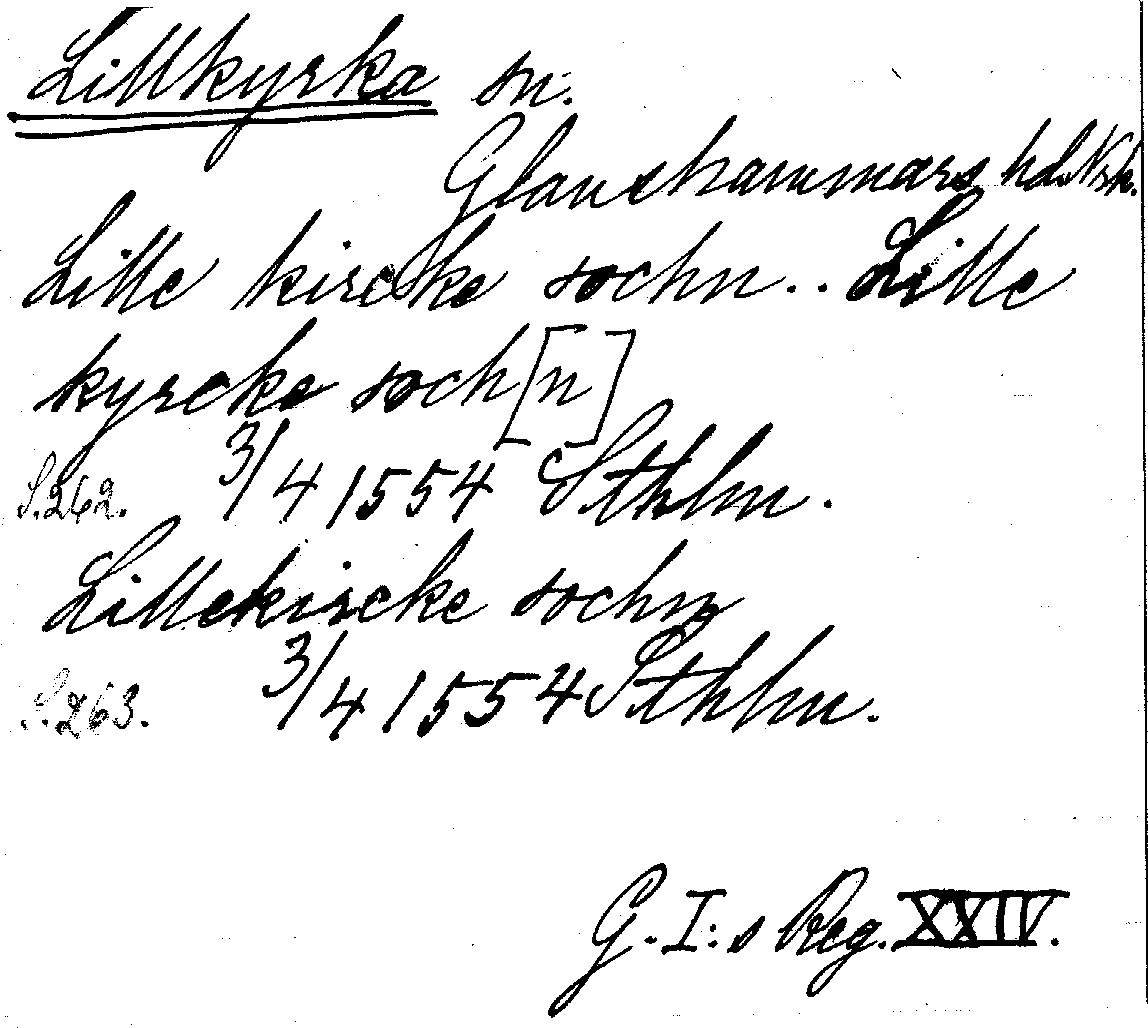 Lillkyrka sn.
Glanshammars hd. Nrk.
Lille kircke sochn.. Lille
kyrcke soch[n]
S. 262. 3/4 1554 Sthlm.
Lillekircke sochn
S. 263. 3/4 1554 Sthlm.
G. I:s Reg. XXIV.